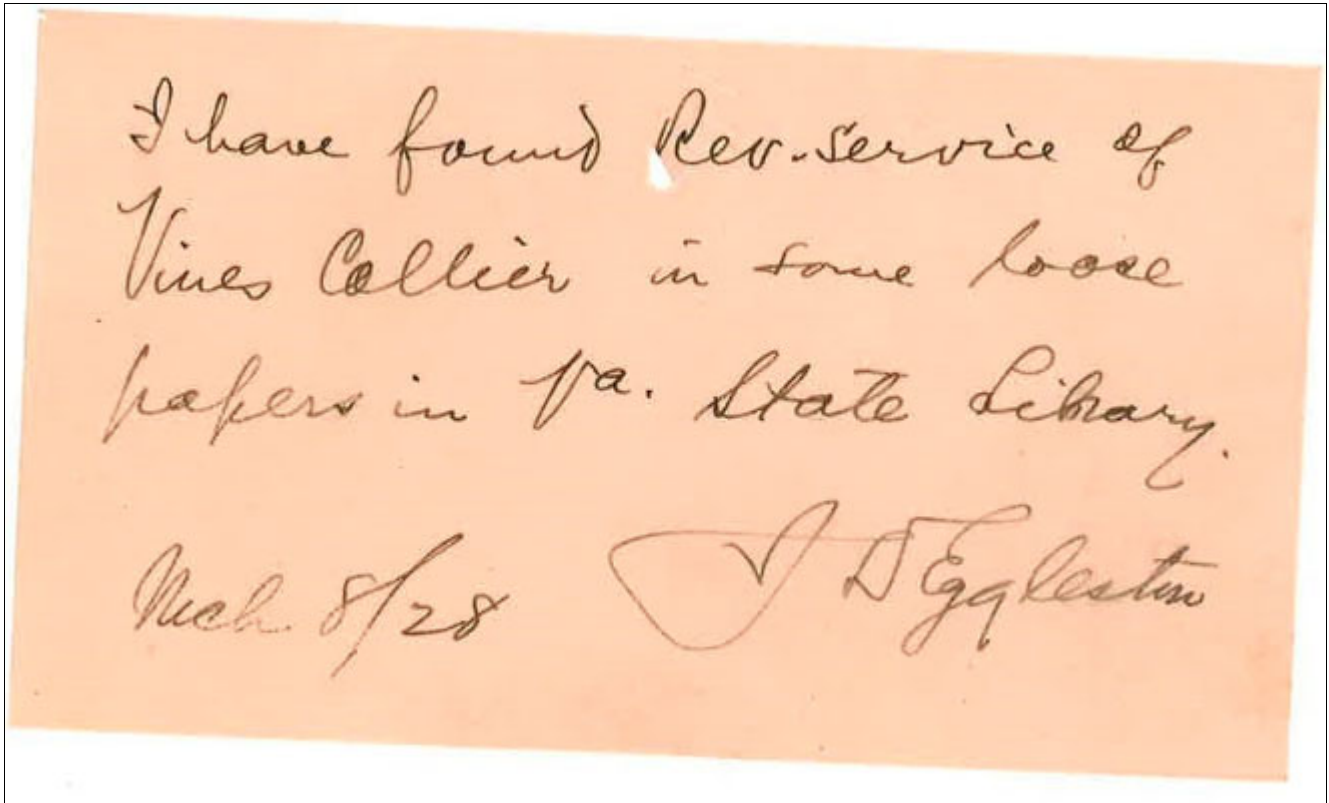 I have found Rev. Service of
Vines Collier in some loose
papers in Va. State Library.
Mch 8/28 J D Eggleston